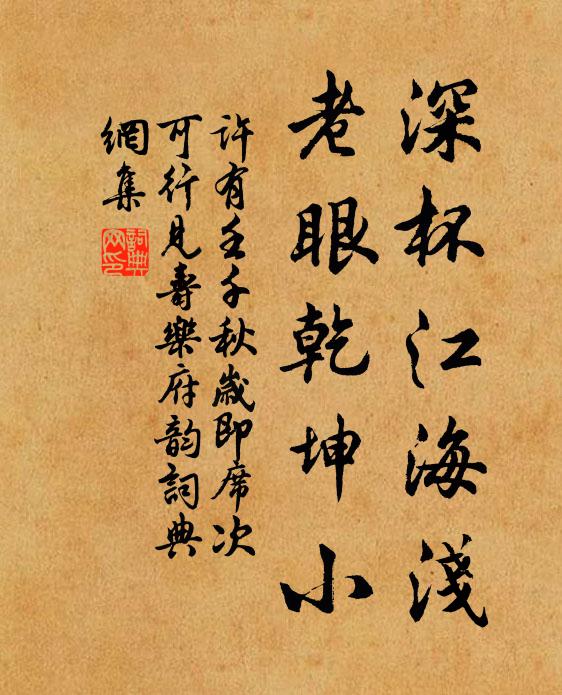 深杯江海淺
老眼乾坤小
許有壬千秋歲即席次
可行見壽樂府韵詞典
網集
詞典網印